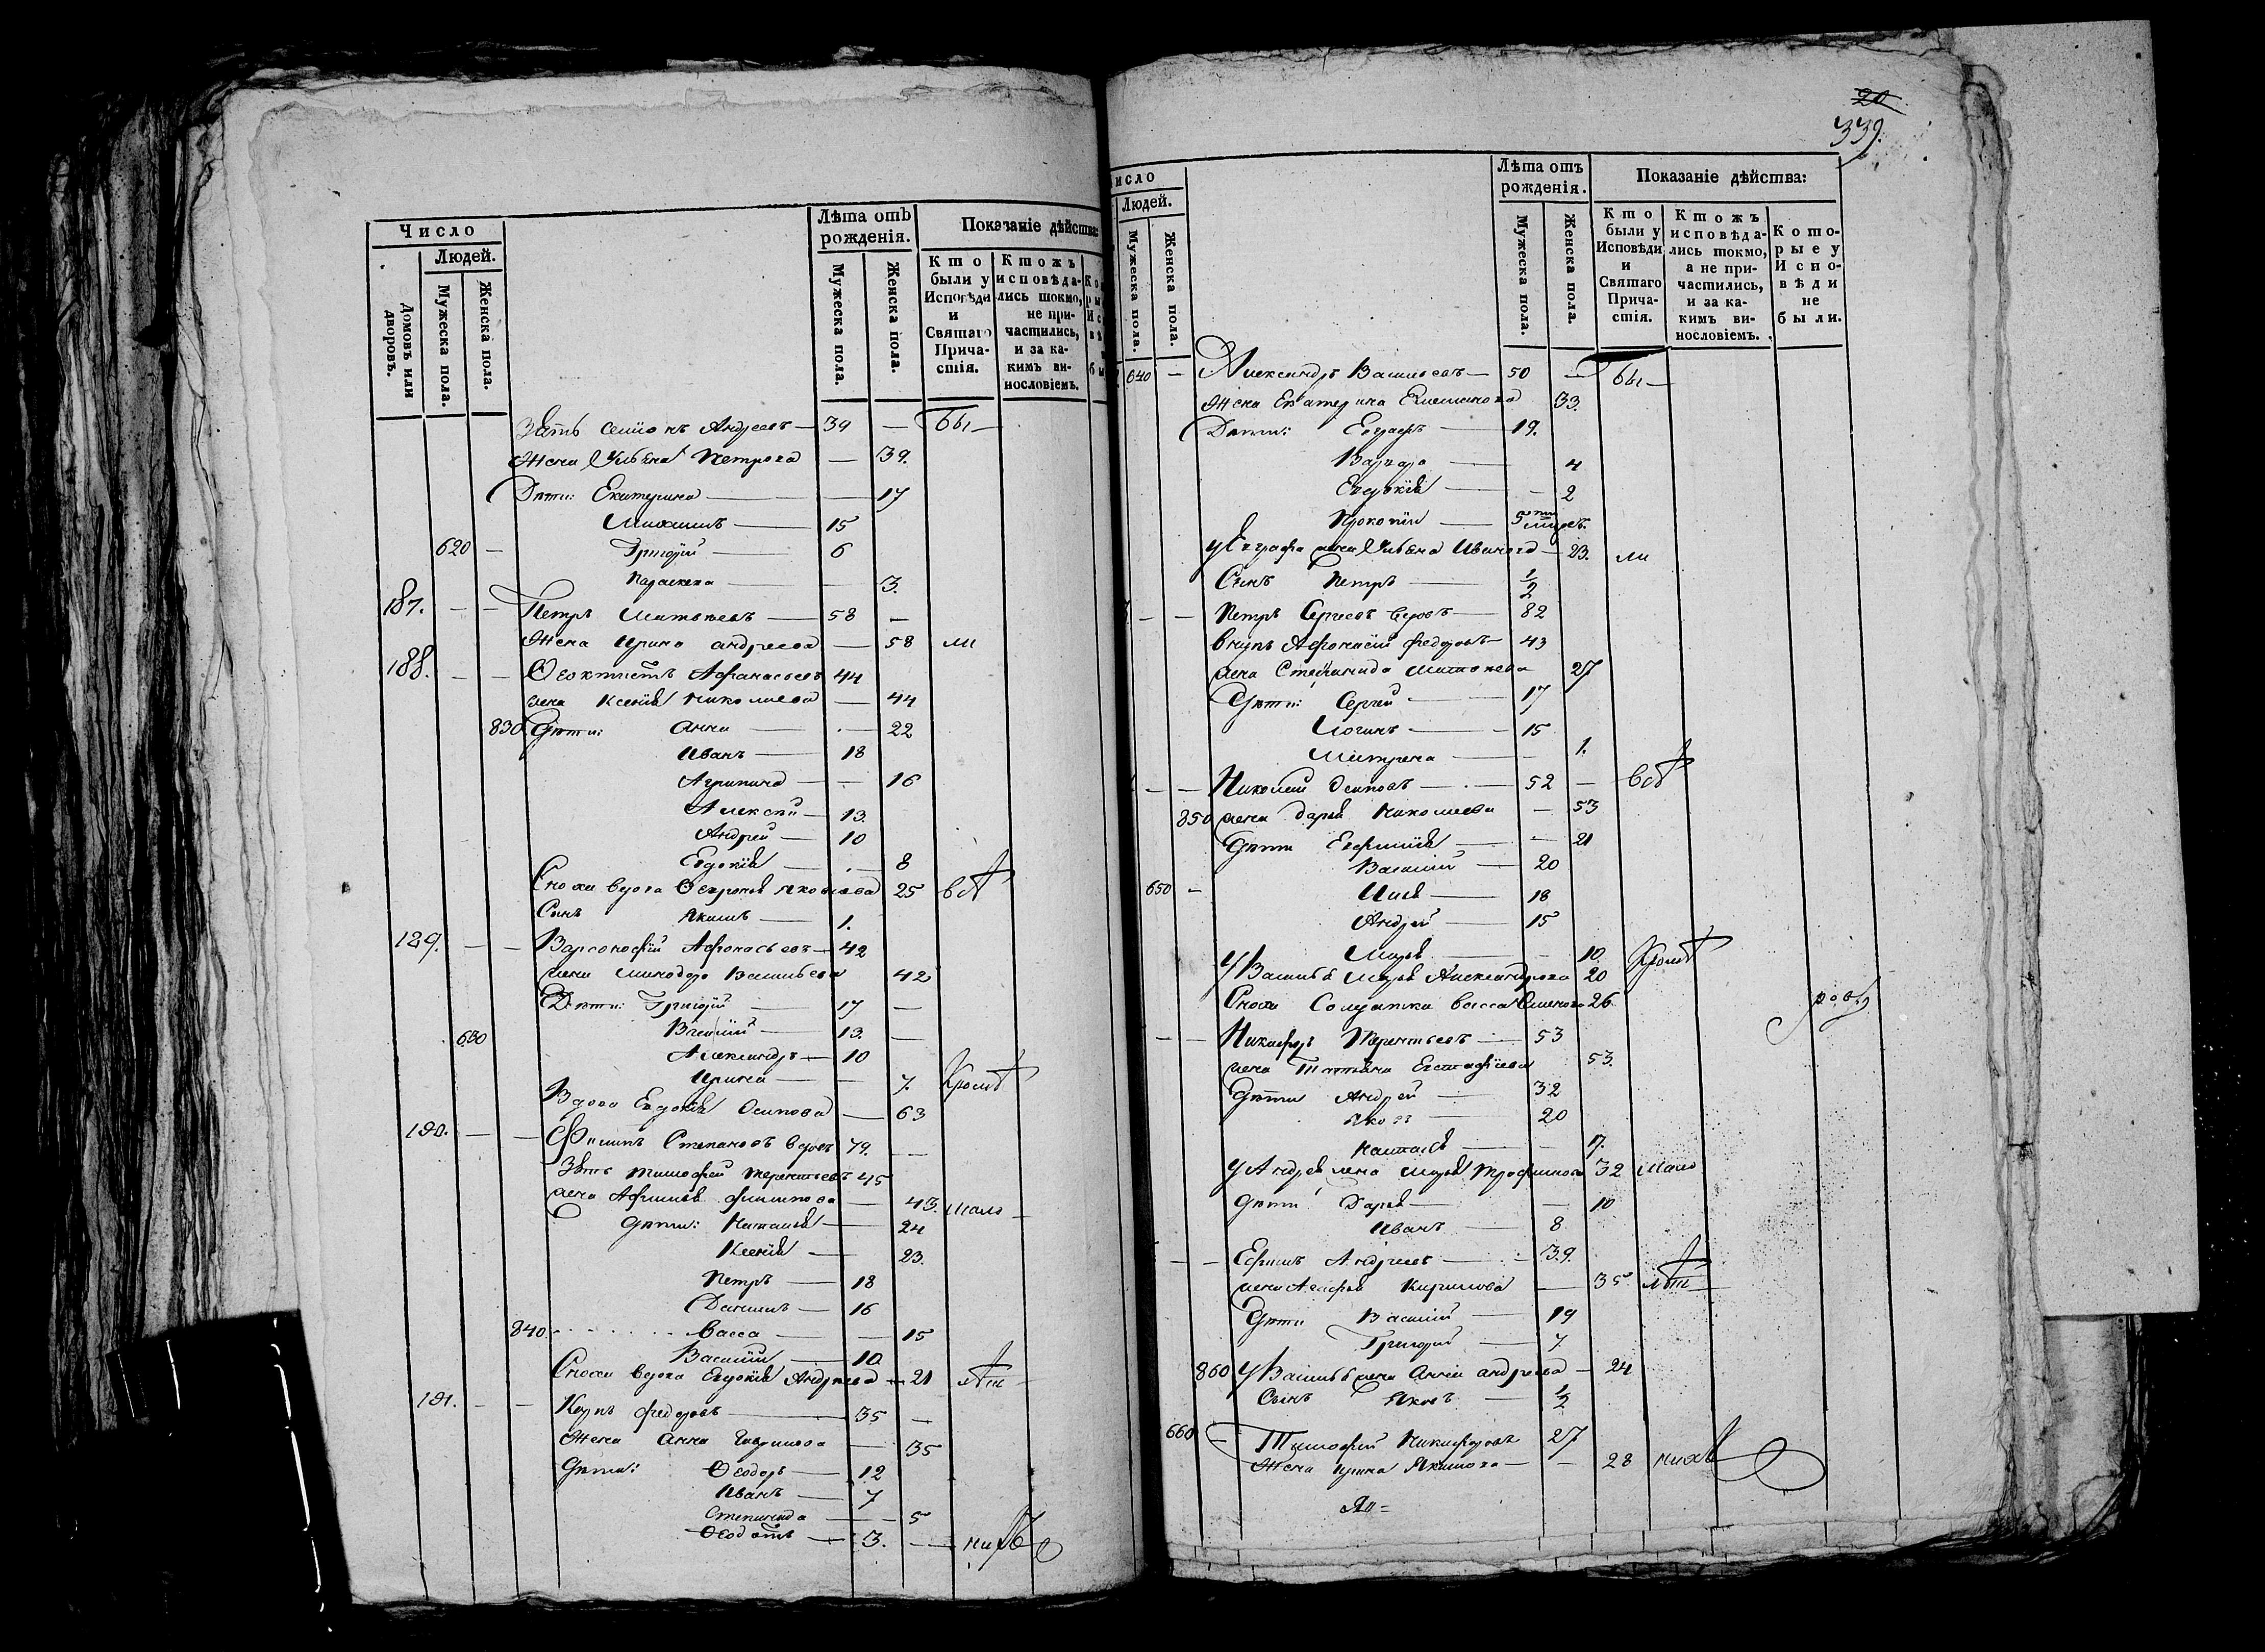 20
339.
Число
Людей.
Домовъ или дворовъ.
Мужеска пола.
Женска пола.
Лѣта отъ рожденія.
Мужеска пола.
Женска пола.
Показаніе дѣйства:
Кто были у Исповѣди и Святаго Причастія.
Ктожъ исповѣдались токмо, не причастились, и за какимъ винословіемъ.
Зять Андреевъ — 39 — бы —
Жена Ульяна Петрова — 39.
Дѣти: Екатерина — 17
15
620 — Григорій — 6
Параскева — 3.
187. — — Петръ Матвѣевъ — 58 —
Жена Ирина Андреева — 58 ли
188. — — Ѳеоктистъ Афанасьевъ 44
жена Ксенія Николаева — 44
830 Дѣти: Анна — 22
Иванъ — 18
Агрипина — 16
Алексѣй — 13.
Андрей — 10
Евдокія — 8
Сноха вдова Яковлева 25 всѣ
Сынъ Якимъ — 1.
189. — — Варсонофій Афонасьевъ — 42
жена Минодора Васильева 42
Дѣти: Григорій — 17 —
630 Василій — 13. —
Александръ — 10
Ирина — 7. Кромѣ
Вдова Евдокія Осипова — 63
190. — — Филипъ Степановъ вдовъ 79. —
Зять Тимофей Терентьевъ 45
жена Афимья Филипова — 43. мало —
Дѣти: Наталья — 24
Ксенія — 23.
Петръ — 18
Данилъ — 16
840. Васса — 15
Василій — 10
Сноха вдова Евдокія Андреева — 21 лѣт
191. — — Карпъ Федоровъ — 35 —
Жена Анна Гаврилова — 35
Дѣти: Ѳеодоръ — 12
Иванъ — 7
Степанида — 5
Ѳеодотъ — 3. —
Число
Людей.
Мужеска пола.
Женска пола.
Лѣта отъ рожденія.
Мужеска пола.
Женска пола.
Показаніе дѣйства:
Кто были у Исповѣди и Святаго Причастія.
Ктожъ исповѣдались токмо, а не причастились, и за какимъ винословіемъ.
Которые у Исповѣди не были.
640 — Александръ Васильевъ — 50 — бы —
Жена Екатерина 33.
Дѣти: Евграфъ — 19.
Варвара — 4
Евдокія — 2
Прокопій — 5
у Евграфа жена Ульяна Иванова — 23. ли
Сынъ Петръ — 1/2
— — Петръ Сергеевъ вдовъ — 82
внукъ Афонасій Федоровъ — 43
жена Степанида Матвѣева 27
Дѣти: Сергей — 17
Логинъ — 15
Матрена — 1.
— — Николай Осиповъ — 52 — всѣ
850 жена Дарья Николаева — 53
Дѣти Евфимія — 21
Василій — 20
650 — Илья — 18
Андрей — 15
Марья — 10. Кромѣ
у Василья Марья Александрова 20
Сноха Солдатка Васса 26.
— — Никифоръ Терентьевъ — 53
жена Татьяна Евстафіева 53.
Дѣти Андрей — 32
Яковъ — 20
Наталья — 17.
у Андрея жена Марья Трофимова 32 мало
Дѣти Дарья — 10
Иванъ — 8
— — Ефимъ Андреевъ — 39.
жена Агафья Кирилова — 35 лѣт
Дѣти Василій — 19
Григорій — 7
860 у Василья жена Анна Андреева — 24
Сынъ Яковъ — 1/2
660 — Тимофей Никифоровъ 27
Жена Ирина Якимова — 28